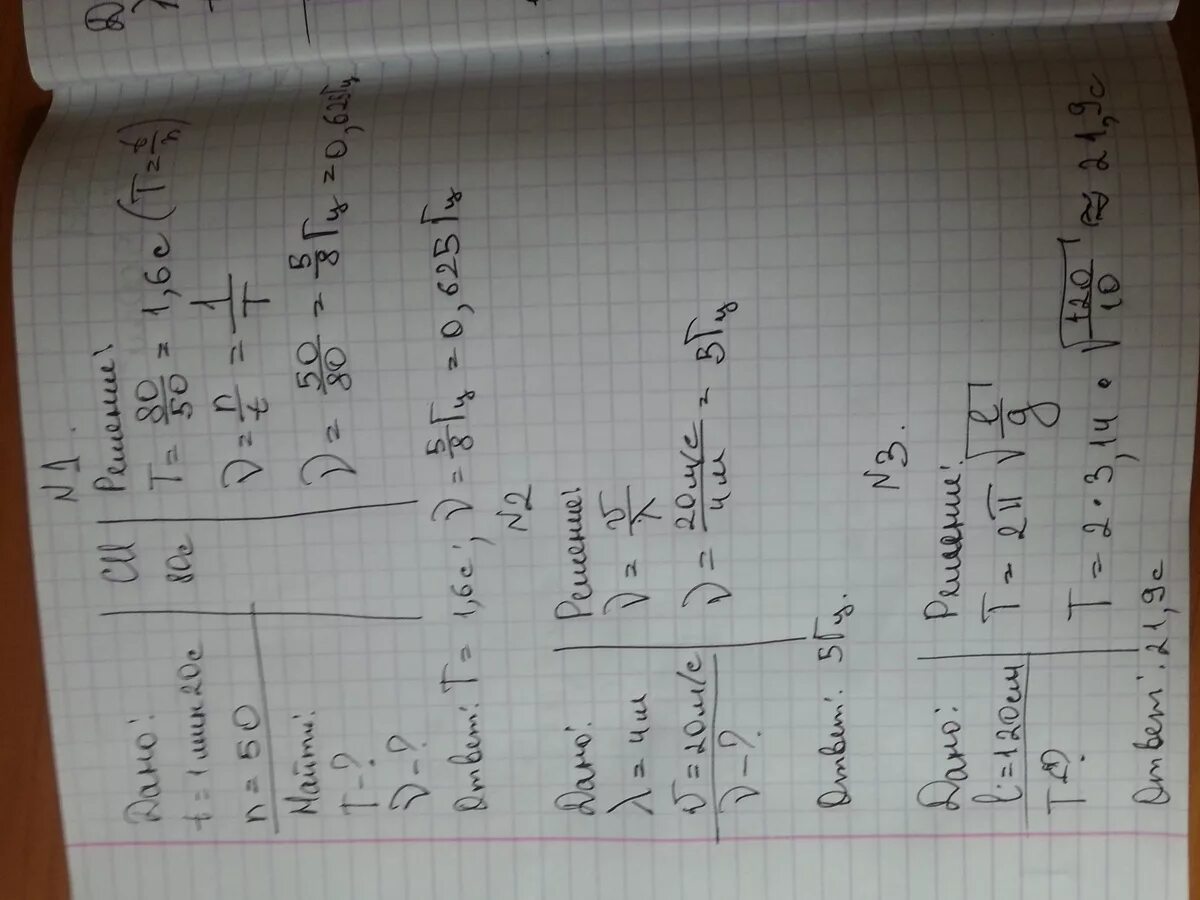 N1.
Дано:
t = 1 мин 20с
n = 50
Найти:
T - ?
ν - ?
СИ
80с
Решение:
T = 80/50 = 1,6с (T = t/n)
ν = n/t = 1/T
ν = 50/80 = 5/8 Гц = 0,625Гц
Ответ: T = 1,6с; ν = 5/8 Гц = 0,625 Гц
N2
Дано:
λ = 4м
v = 20м/с
ν - ?
Решение:
ν = v/λ
ν = 20м/с/4м = 5Гц
Ответ: 5Гц.
N3.
Дано:
l = 120см
T - ?
Решение:
T = 2π √l/g
T = 2 · 3,14 · √120/10 ≈ 21,9с
Ответ: 21,9с